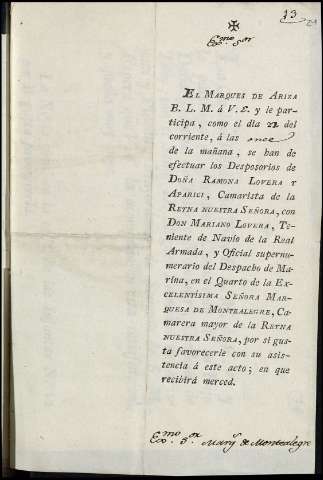 13
✠
Exc.mo S.or
EL MARQUES DE ARIZA
B. L. M. á V. E. y le par-
ticipa, como el dia 22 del
corriente, á las once
de la mañana, se han de
efectuar los Desposorios de
DOÑA RAMONA LOVERA Y
APARICI, Camarista de la
REYNA NUESTRA SEÑORA, con
DON MARIANO LOVERA, Te-
niente de Navío de la Real
Armada, y Oficial supernu-
merario del Despacho de Ma-
rina, en el Quarto de la EX-
CELENTÍSIMA SEÑORA MAR-
QUESA DE MONTEALEGRE, Ca-
marera mayor de la REYNA
NUESTRA SEÑORA, por si gus-
ta favorecerle con su asis-
tencia á este acto; en que
recibirá merced.
Exc.mo S.or Marq.s de Montealegre